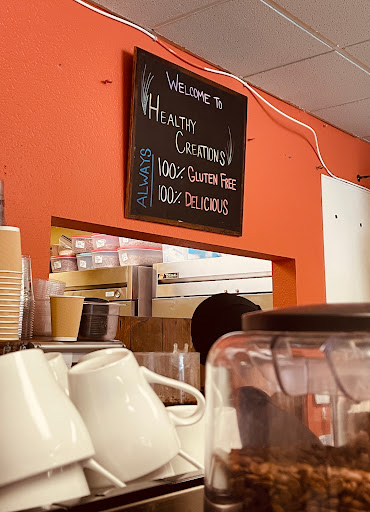 WELCOME TO
HEALTHY
CREATIONS
ALWAYS
100% GLUTEN FREE
100% DELICIOUS